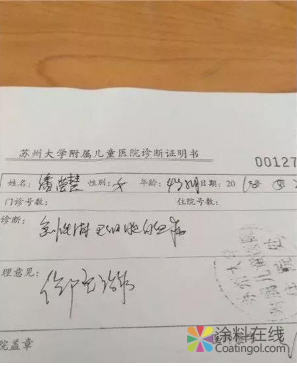 苏州大学附属儿童医院诊断证明书
00127
姓名: 性别: 女 年龄: 日期: 201
门诊号数: 住院号数:
诊断:
急性淋巴细胞白血病
理意见:
住院治疗
院盖章
涂料在线
Coatingol.com